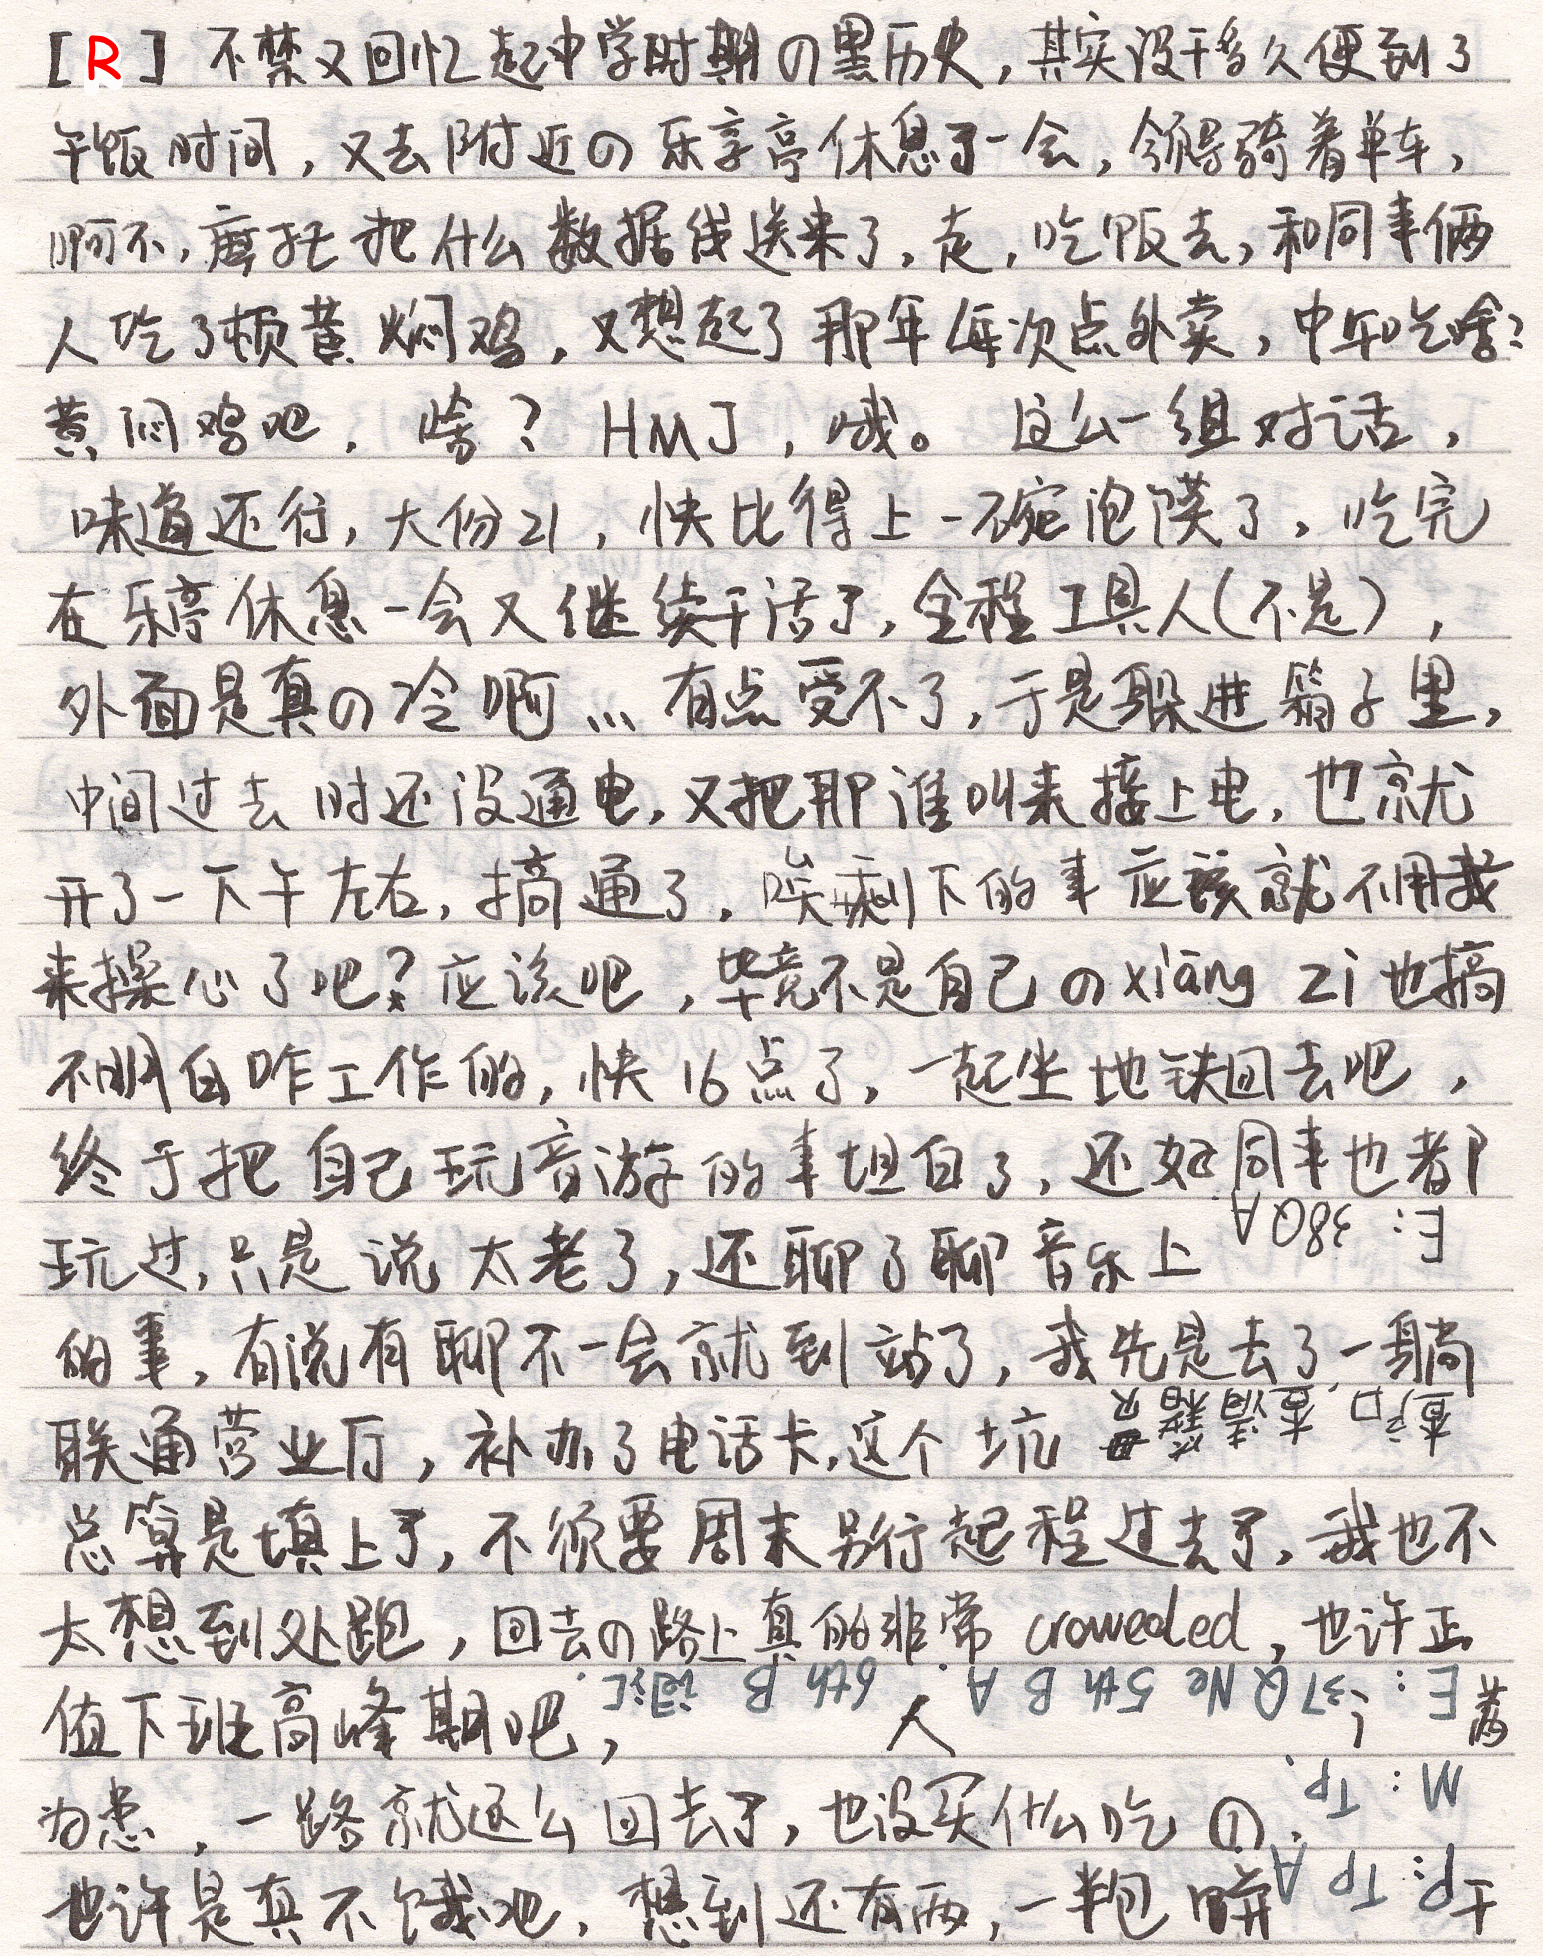 [R] 不禁又回忆起中学时期の黑历史，其实没干多久便到了
午饭时间，又去附近の乐享亭休息了一会，领导骑着单车，
啊不，摩托把什么数据线送来了，走，吃饭去，和同事俩
人吃了顿黄焖鸡，又想起了那年每次点外卖，中午吃啥？
黄焖鸡吧，啥？HMJ，哦。这么一组对话，
味道还行，大份21，快比得上一碗泡馍了，吃完
在乐亭休息一会又继续干活了，全程工具人（不是），
外面是真の冷啊… 有点受不了，于是躲进箱子里，
中间过去时还没通电，又把那谁叫来接上电，也就
开了一下午左右，搞通了，唉剩下的事应该就不用我
来操心了吧？应该吧，毕竟不是自己の xiāng zi 也搞
不明白咋工作的，快16点了，一起坐地铁回去吧，
终于把自己玩音游的事坦白了，还好同事也都
E: 38Q A
玩过，只是说太老了，还聊了聊音乐上
的事，有说有聊不一会就到站了，我先是去了一趟
联通营业厅，补办了电话卡，这个坑
总算是填上了，不须要周末另行起程过去了，我也不
太想到处跑，回去の路上真的非常 croweded，也许正
E: 37Q Ne 5th B A 6th B 词汇.
值下班高峰期吧， 人 满
M: Tp.
为患，一路就这么回去了，也没买什么吃の，
P: Tp A
也许是真不饿吧，想到还有两，一半包饼干